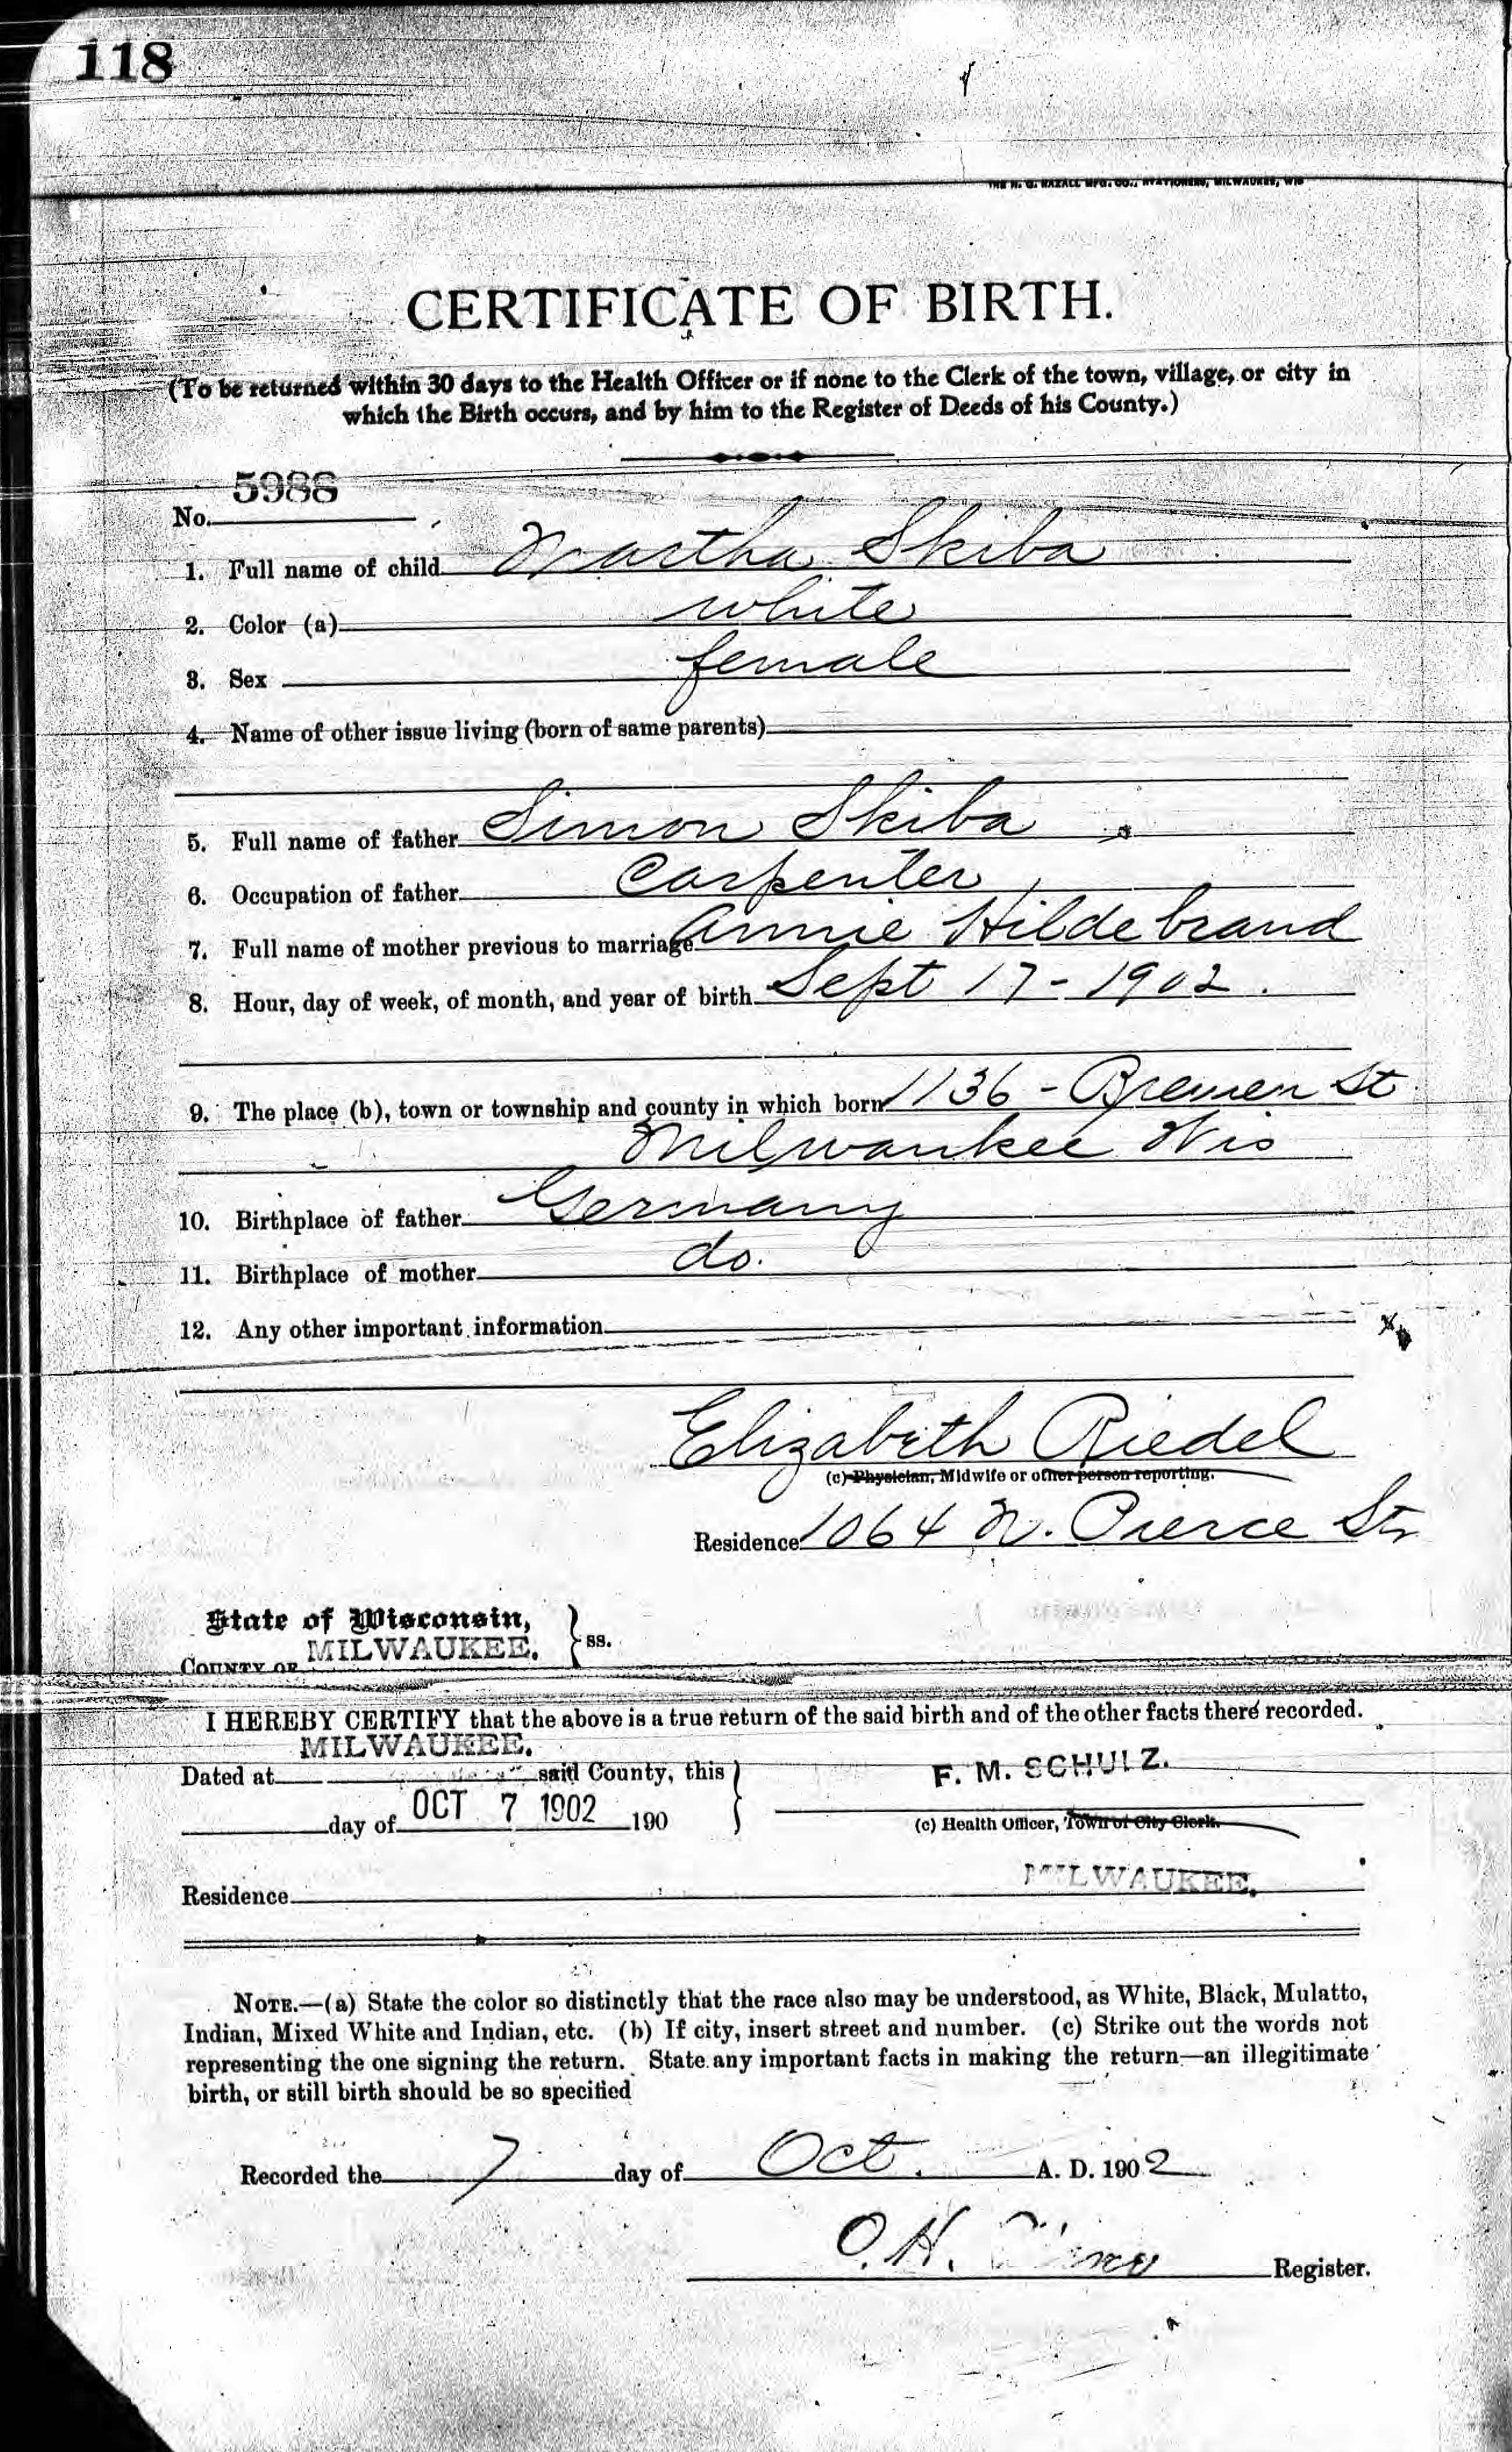 118
THE H. G. RAZALL MFG. CO., STATIONERS, MILWAUKEE, WIS
CERTIFICATE OF BIRTH.
(To be returned within 30 days to the Health Officer or if none to the Clerk of the town, village, or city in
which the Birth occurs, and by him to the Register of Deeds of his County.)
No. 5986
1. Full name of child Martha Skiba
2. Color (a) white
3. Sex female
4. Name of other issue living (born of same parents)
5. Full name of father Simon Skiba
6. Occupation of father Carpenter
7. Full name of mother previous to marriage Annie Hildebrand
8. Hour, day of week, of month, and year of birth Sept 17-1902.
9. The place (b), town or township and county in which born 1136 - Bremen St
Milwaukee Wis
10. Birthplace of father Germany
11. Birthplace of mother do.
12. Any other important information
Elizabeth Riedel
(c) Physician, Midwife or other person reporting.
Residence 1064 N. Pierce Str
State of Wisconsin,
COUNTY OF MILWAUKEE. } ss.
I HEREBY CERTIFY that the above is a true return of the said birth and of the other facts there recorded.
MILWAUKEE.
Dated at said County, this
F. M. SCHULZ.
day of OCT 7 1902 190
(c) Health Officer, Town or City Clerk.
Residence MILWAUKEE.
NOTE.—(a) State the color so distinctly that the race also may be understood, as White, Black, Mulatto,
Indian, Mixed White and Indian, etc. (b) If city, insert street and number. (c) Strike out the words not
representing the one signing the return. State any important facts in making the return—an illegitimate
birth, or still birth should be so specified
Recorded the 7 day of Oct. A. D. 1902
O. H.
Register.